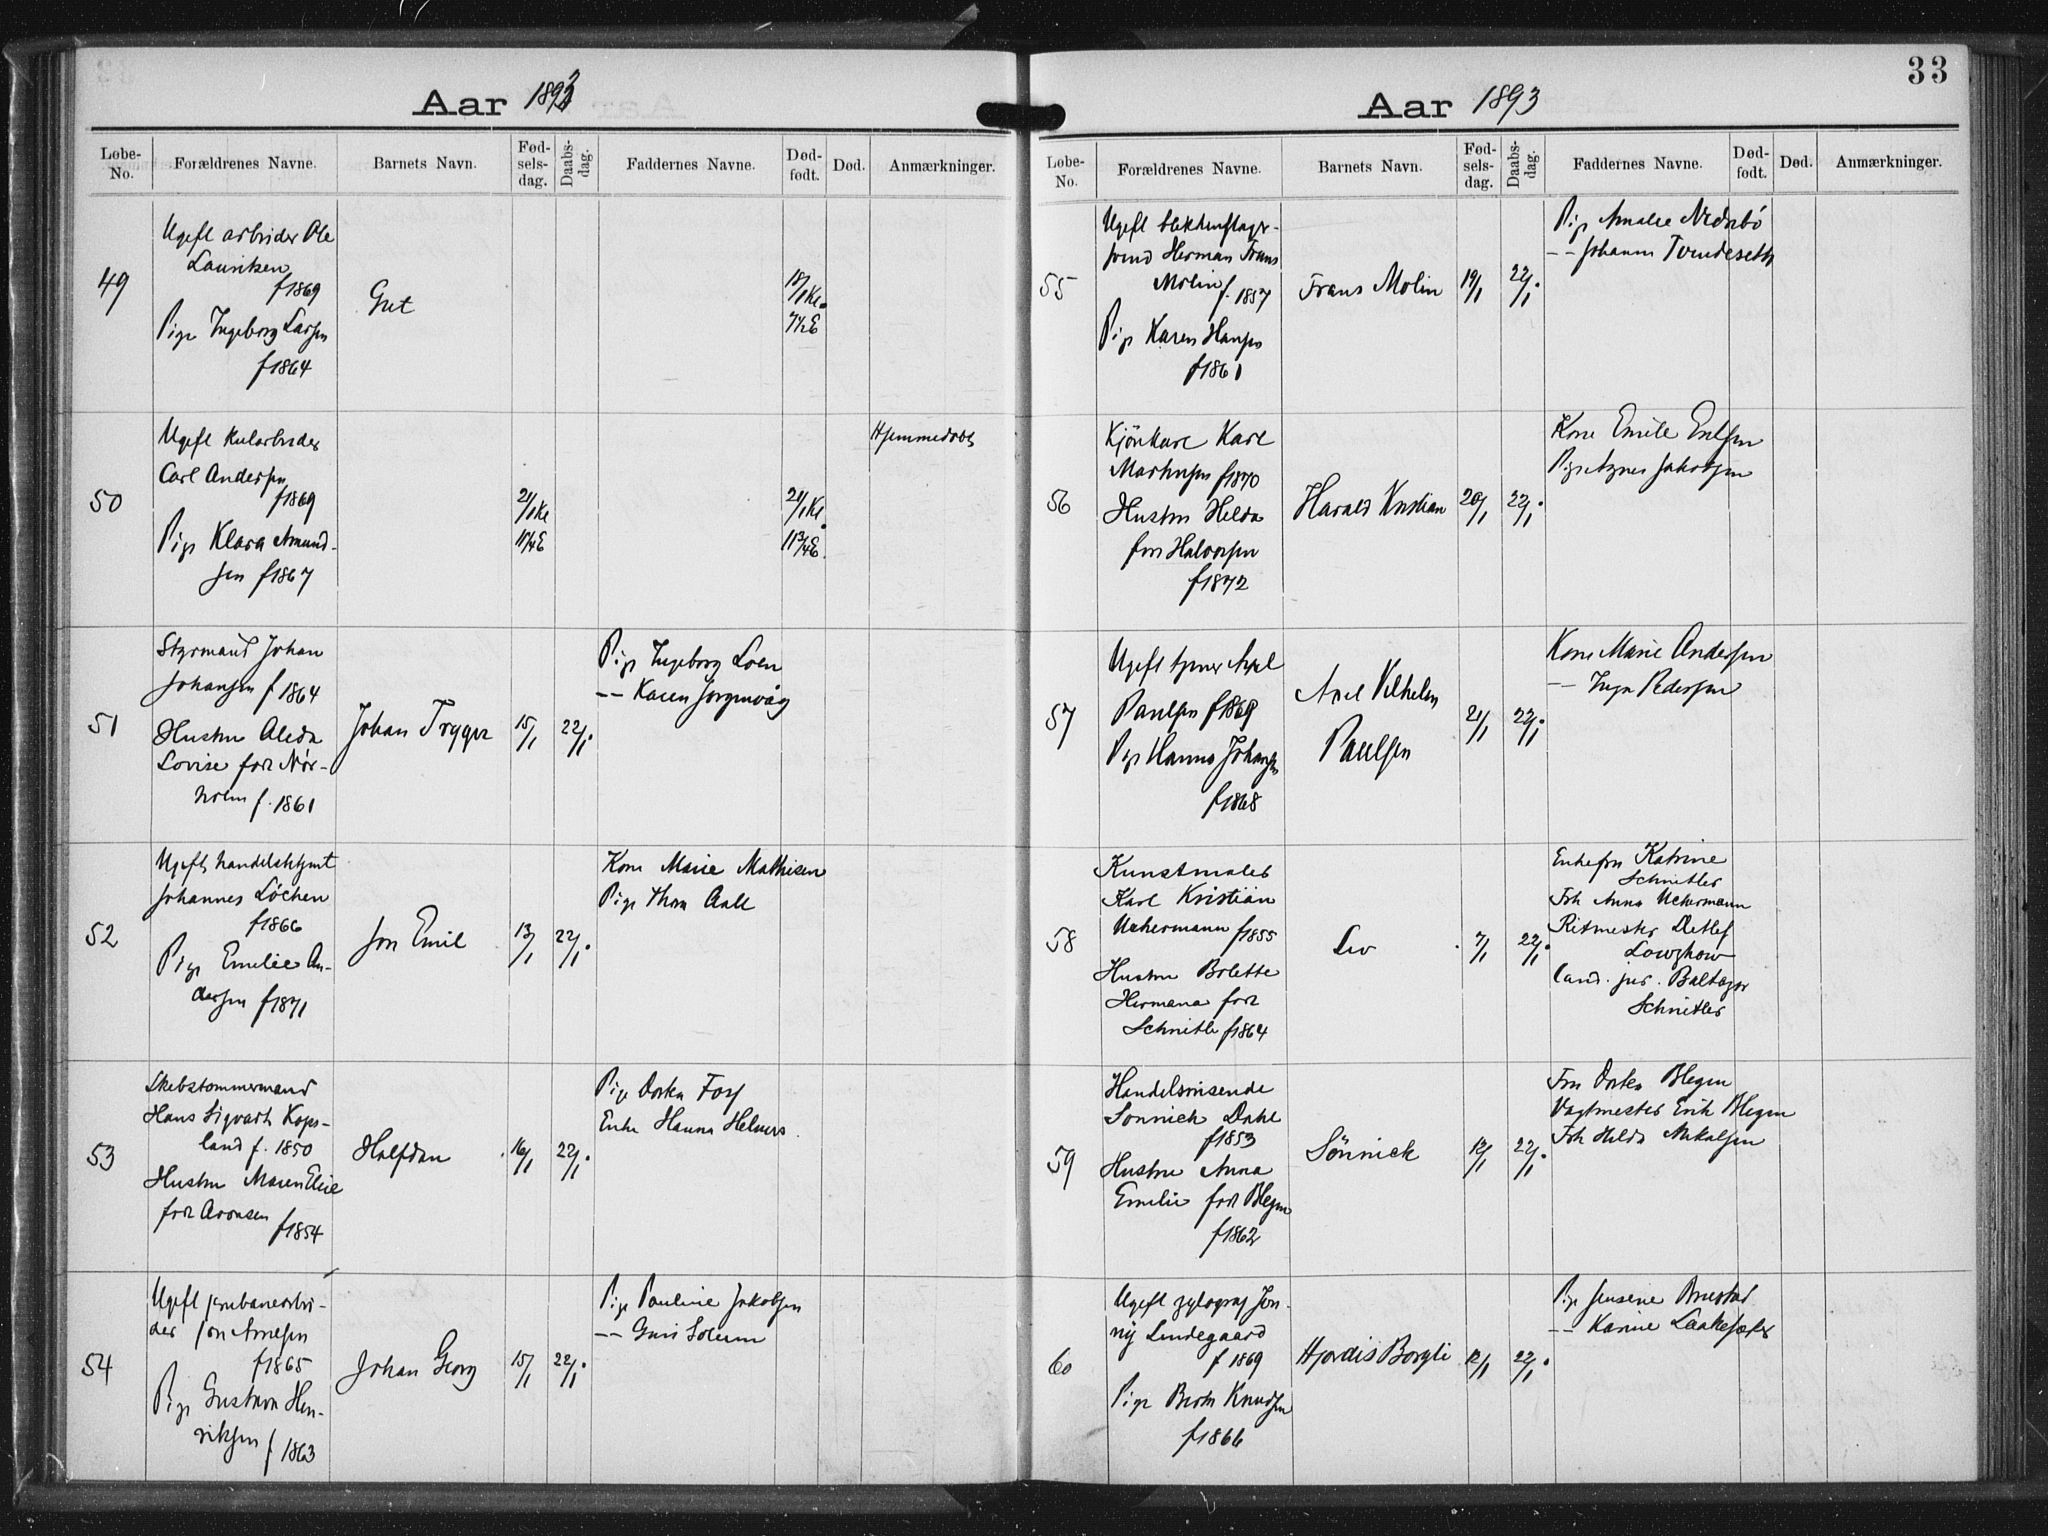 Aar 1893
Løbe-No.
Forældrenes Navne.
Barnets Navn.
Fødselsdag.
Daabsdag.
Faddernes Navne.
Dødfødt.
Død.
Anmærkninger.
49
Ugeft arbeider Ole
Lauritsen
f 1869
Pige Ingeborg Larsen
f 1864
Gut
18/1 Kl.
7 1/2 E
50
Ugeft
Carl Andersen
f 1869
Pige Klara Amund-
sen f 1867
21/1 Kl
21/1 Kl.
11 3/4 E
51
Styrmand Johan
Johansen f 1864
Hustru Alida
Lovise født Nør-
holm f. 1861
Johan Trygve
15/1
22/1.
Pige Ingeborg Loen
-- Karen
52
Ugeft handelsbetjent
Johannes Löchen
f 1866
Pige Emelie An-
dersen f 1871
Jon Emil
13/1
22/1.
Kone Marie Mathisen
Pige Thora Aall
53
Skibstømmermand
Hans Sigvart Kops-
land f. 1850
Hustru Maren Elise
født Aronsen
f 1854
Halfdan
16/1
22/1.
Pige Dorthea Foss
Enke Hanna Helmers
54
Ugeft jernbanearbei-
der Jon Arnesen
f 1865
Pige Gustava Hen-
riksen f 1863
Johan Georg
15/1
22/1.
Pige Pauline Jakobsen
-- Guri Soleim
33
Aar 1893
Løbe-No.
Forældrenes Navne.
Barnets Navn.
Fødselsdag.
Daabsdag.
Faddernes Navne.
Dødfødt.
Død.
Anmærkninger.
55
Ugeft blikkenslager-
svend Herman Frans
Molin f. 1857
Pige Karen Hansen
f 1861
Frans Molin
19/1
22/1.
Pige Amalie
-- Johanne Tvendeseth
56
Karl
f 1870
Hustru Hilda
født Halvorsen
f 1872
Harald Kristian
20/1
22/1.
Kone Emilie
Pige Agnes Jakobsen
57
Ugeft tjener Axel
Paulsen f 1869
Pige Hanna Johansen
f 1868
Axel Vilhelm
Paulsen
21/1
22/1.
Kone Marie Andersen
-- Inga Pedersen
58
Kunstmaler
Karl Kristian
Uchermann f 1855
Hustru Bolette
Hermana født
Schnitler f 1864
Liv
7/1
22/1.
Enkefru Katrine
Schnitler
Frk Anna Uchermann
Ritmester Detlef
Lowzhow
Cand. jur. Baltazar
Schnitler
59
Handelsreisende
Sønnich Dahl
f 1853
Hustru Anna
Emilie født Blegen
f 1862
Sönnich
12/1
22/1.
Fru Dorthea Blegen
Vagtmester Erik Blegen
Frk Hilda Mikalsen
60
Ugeft xylograf Jon-
ny Lindegaard
f 1869
Pige Berta Knudsen
f 1866
Hjördis Borgli
12/1
22/1.
Pige Jensine
-- Karine